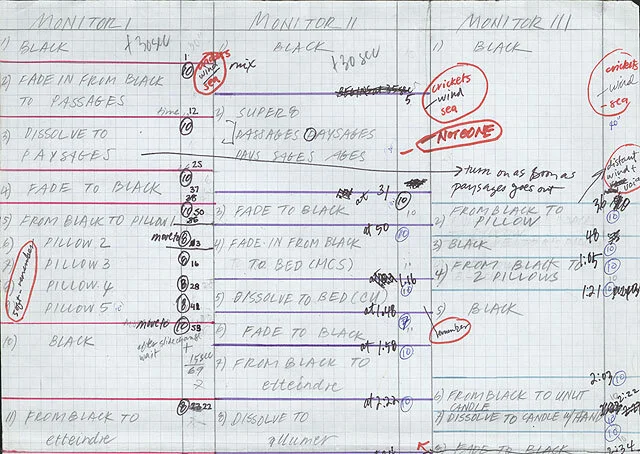 MONITOR I
1) BLACK
+30 sec
crickets
wind
sea
mix
2) FADE IN FROM BLACK
TO PASSAGES
time 12
3) DISSOLVE TO
PAYSAGES
25
4) FADE TO BLACK
37
5) FROM BLACK TO PILLOW 1
50
6) PILLOW 2
move to
7) PILLOW 3
16
8) PILLOW 4
28
9) PILLOW 5
48
say - remember
move to
58
10) BLACK
after slide change
wait
15 sec
69
11) FROM BLACK TO
etteindre
22
MONITOR II
BLACK
+30 sec
5
2) SUPER 8
PASSAGES PAYSAGES
PAYS SAGES AGES
at 31
3) FADE TO BLACK
at 50
4) FADE IN FROM BLACK
TO BED (MCS)
1.16
5) DISSOLVE TO BED (CU)
at 1.48
6) FADE TO BLACK
at 1.58
7) FROM BLACK TO
etteindre
at 2:22
8) DISSOLVE TO
allumer
MONITOR III
1) BLACK
crickets
- wind
sea
- NOT GONE
crickets
- wind
- sea
40"
turn on as soon as
paysages goes out
distant
wind +
voice
2) FROM BLACK TO
PILLOW
48
3) BLACK
1:05
4) FROM BLACK TO
2 PILLOWS
1:21
5) BLACK
remember
2:03
6) FROM BLACK TO UNLIT
CANDLE
2:22
7) DISSOLVE TO CANDLE W/HAND
8) FADE TO BLACK
2:34